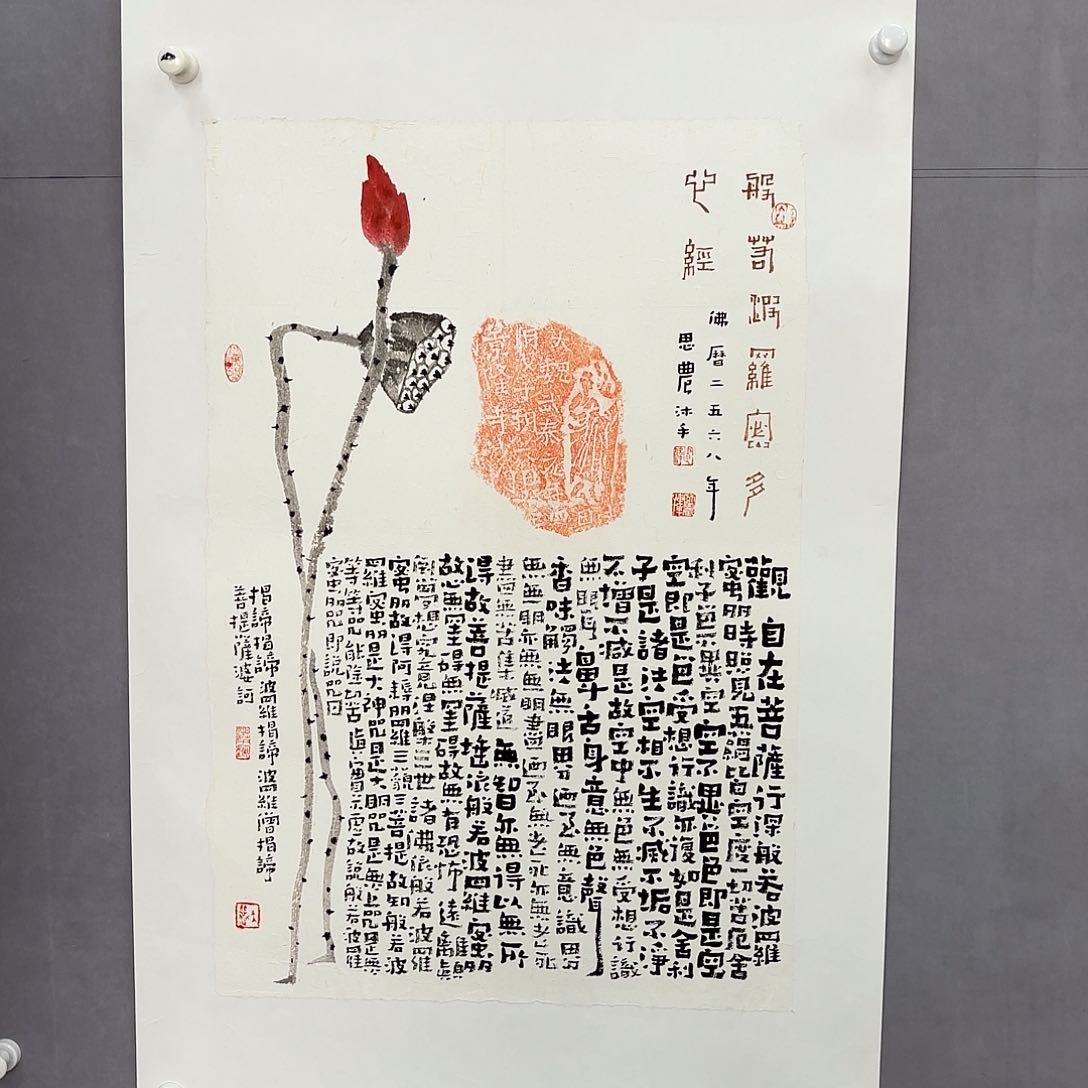 般若波羅密多
心經
佛曆二五六八年
思農沐手
觀自在菩薩行深般若波羅
蜜多時照見五蘊皆空度一切苦厄舍
利子色不異空空不異色色即是空
空即是色受想行識亦復如是舍利
子是諸法空相不生不滅不垢不淨
不增不減是故空中無色無受想行識
無眼耳鼻舌身意無色聲
香味觸法無眼界乃至無意識界
無無明亦無無明盡乃至無老死亦無老死
盡無苦集滅道無智亦無得以無所
得故菩提薩埵依般若波羅蜜多
故心無罣礙無罣礙故無有恐怖遠離顛
倒夢想究竟涅槃三世諸佛依般若波羅
蜜多故得阿耨多羅三藐三菩提故知般若波
羅蜜多是大神咒是大明咒是無上咒是無
等等咒能除一切苦真實不虛故說般若波羅
蜜多咒即說咒曰
揭諦揭諦波羅揭諦波羅僧揭諦
菩提薩婆訶